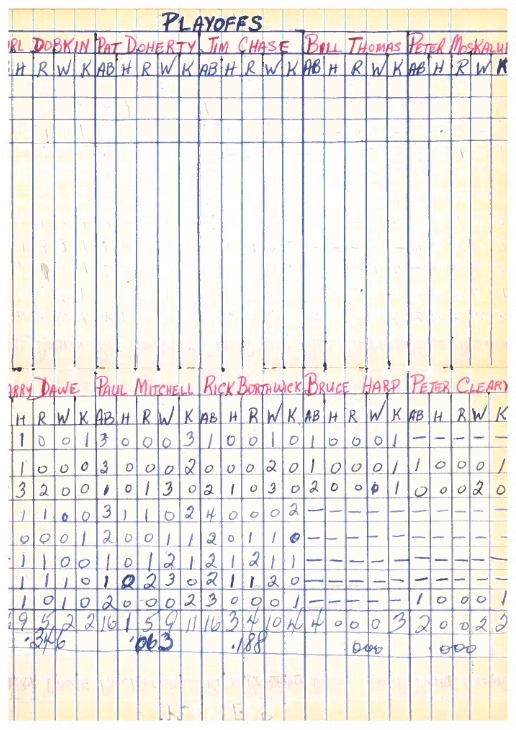 PLAYOFFS
RL DOBKIN PAT DOHERTY JIM CHASE BILL THOMAS PETER MOSKALU
H R W K AB H R W K AB H R W K AB H R W K AB H R W K
ARRY DAWE PAUL MITCHELL RICK BORTHWICK BRUCE HARP PETER CLEARY
H R W K AB H R W K AB H R W K AB H R W K AB H R W K
1 0 0 1 3 0 0 0 3 1 0 0 1 0 1 0 0 0 1 – – – – –
1 0 0 0 3 0 0 0 2 0 0 0 2 0 1 0 0 0 1 1 0 0 0 1
3 2 0 0 1 0 1 3 0 2 1 0 3 0 2 0 0 0 1 0 0 0 2 0
1 1 0 0 3 1 1 0 2 4 0 0 0 2 – – – – – – – – – –
0 0 0 1 2 0 0 1 1 2 0 1 1 0 – – – – – – – – – –
1 1 0 0 1 0 1 2 1 2 1 2 1 1 – – – – – – – – – –
1 1 1 0 1 0 2 3 0 2 1 1 2 0 – – – – – – – – – –
1 0 1 0 2 0 0 0 2 3 0 0 0 1 – – – – – 1 0 0 0 1
9 5 2 2 16 1 5 9 11 16 3 4 10 4 4 0 0 0 3 2 0 0 2 2
.346 .063 .188 000 000